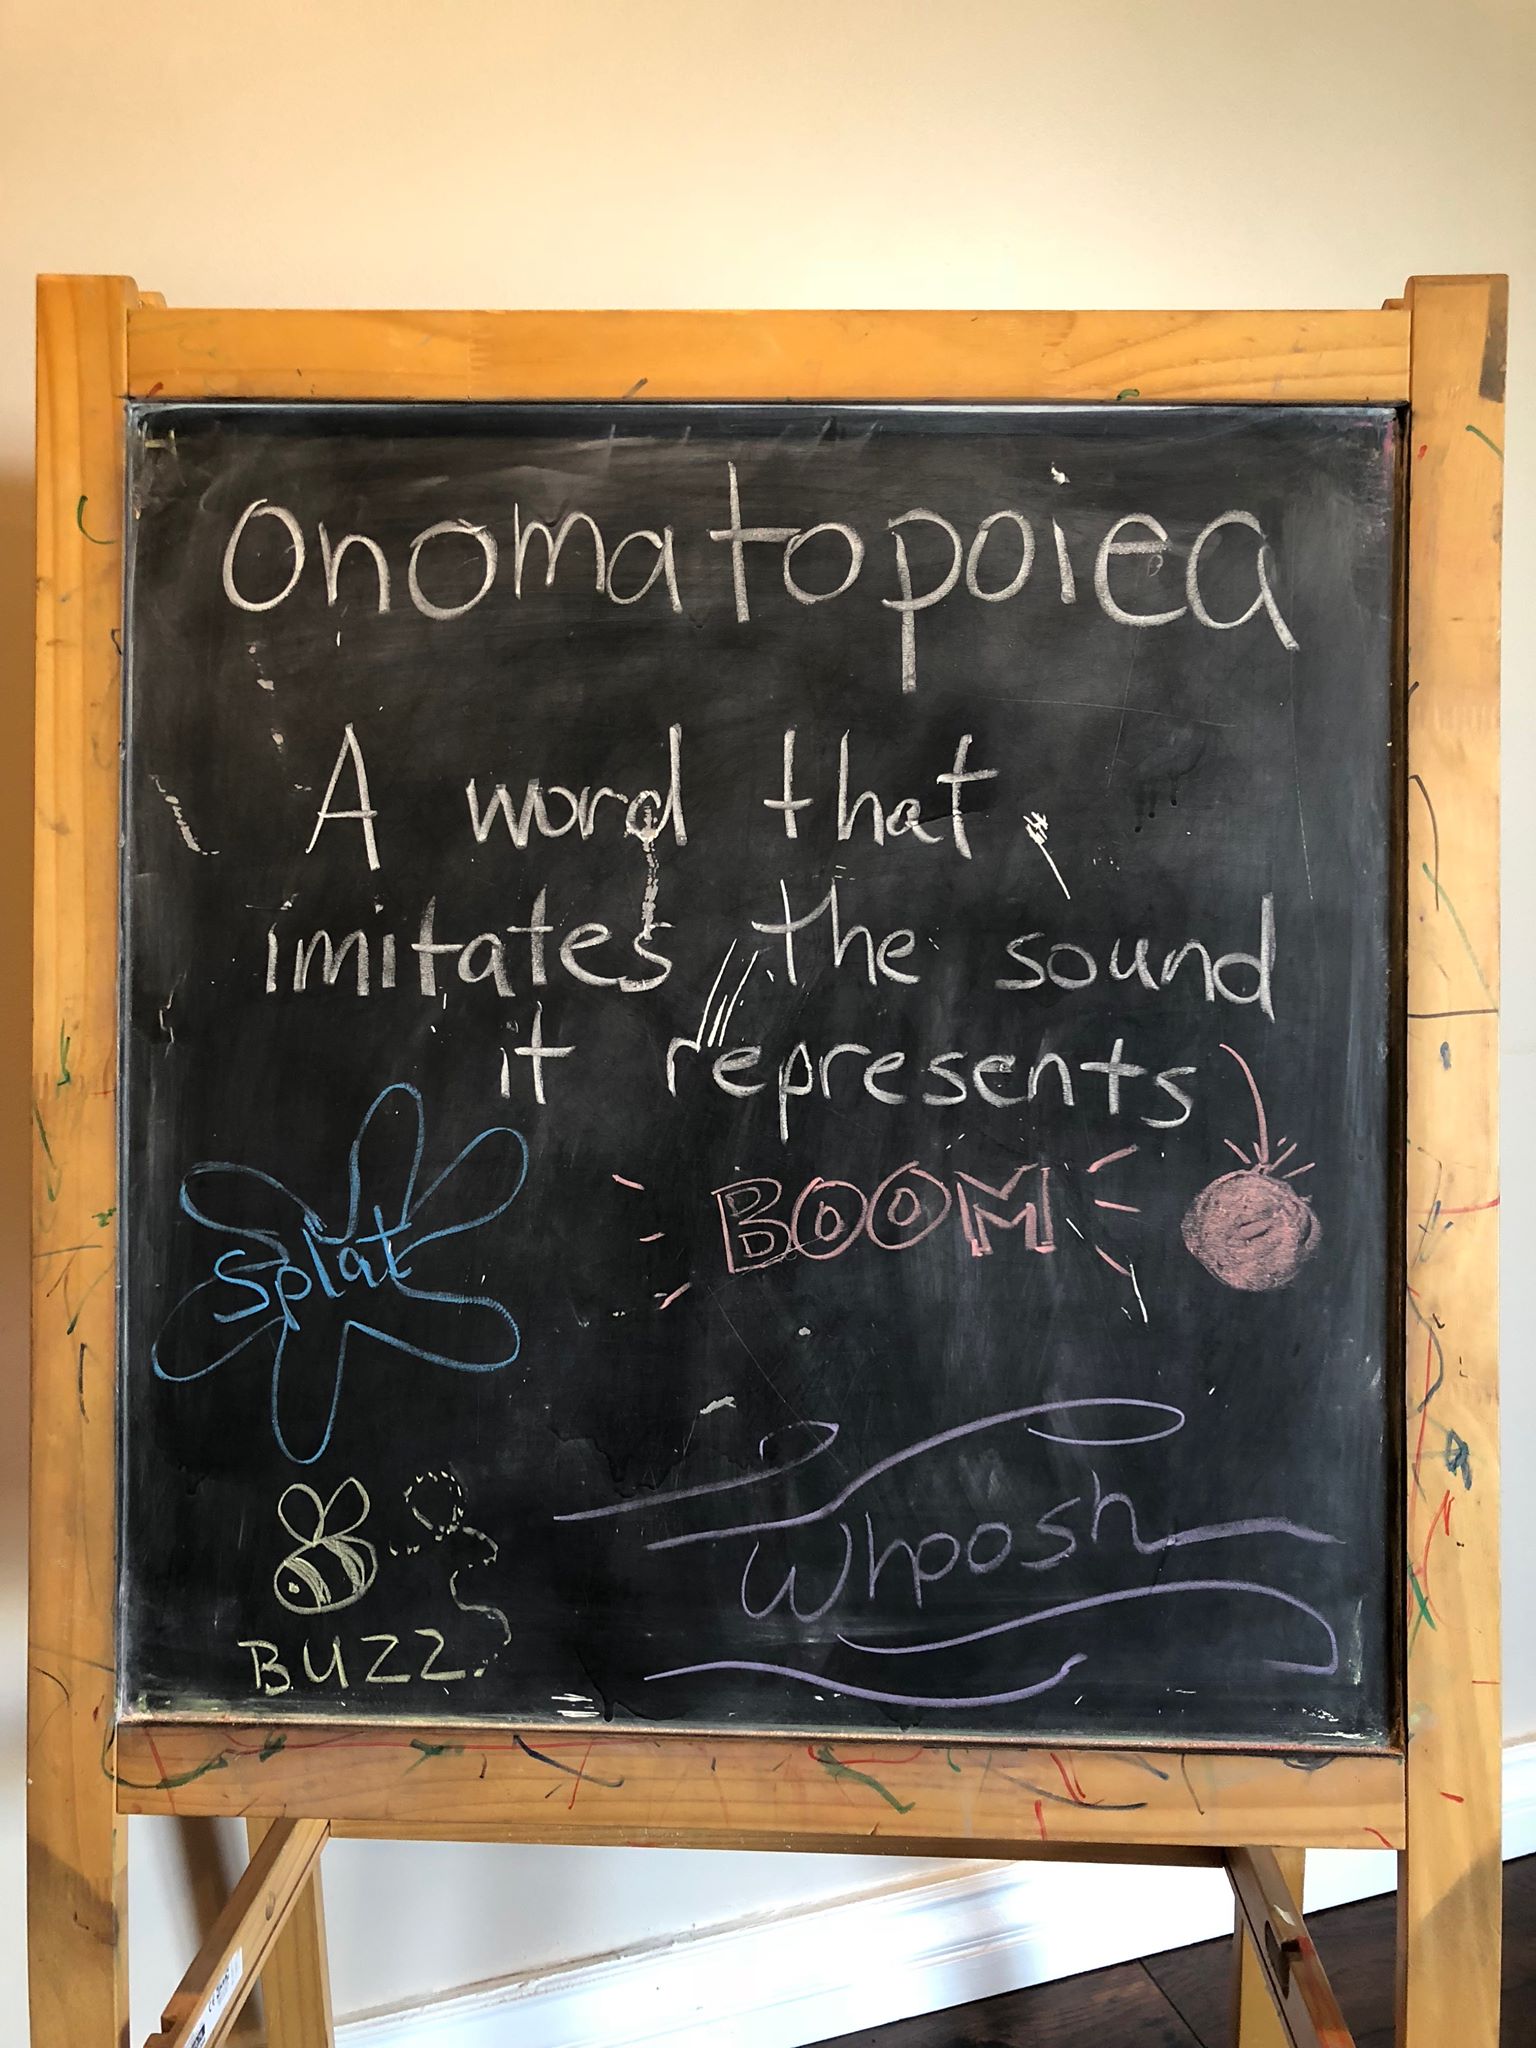 onomatopoiea
A word that
imitates the sound
it represents
Splat
BOOM
Whoosh
BUZZ